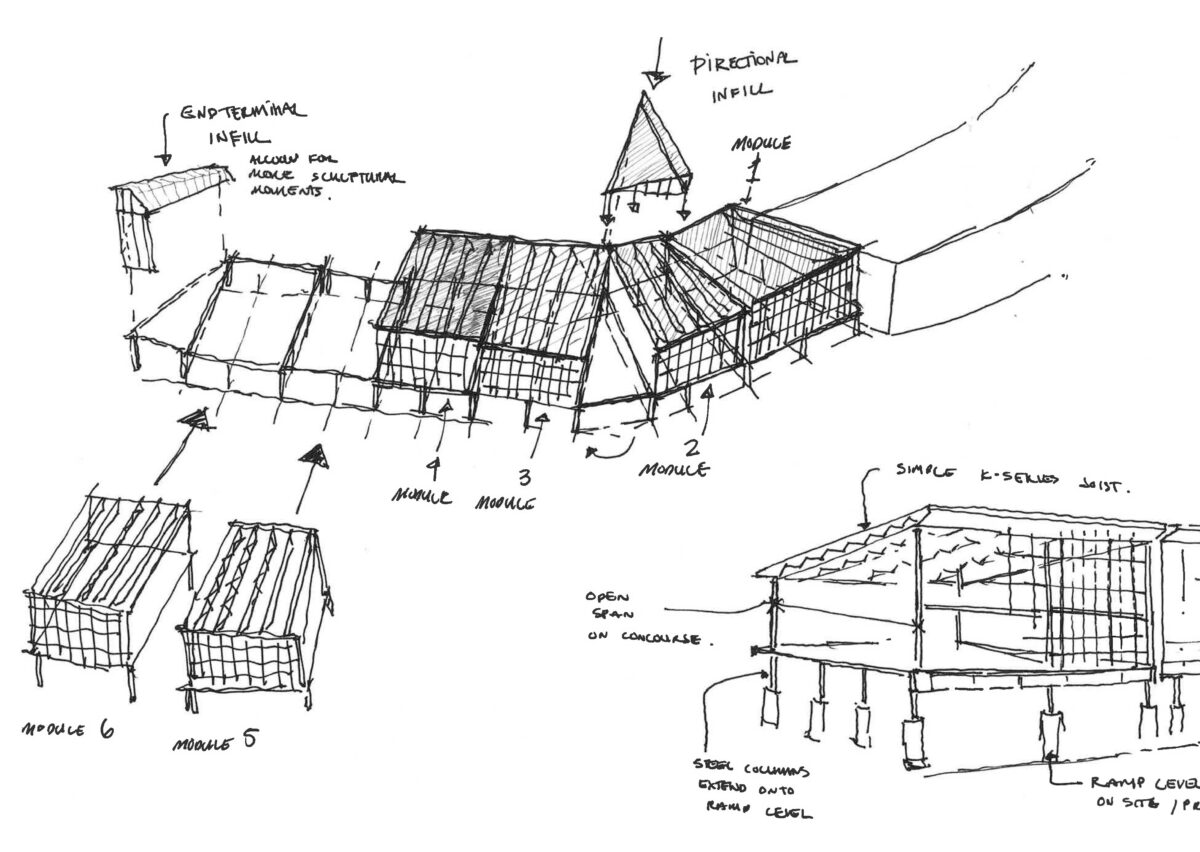 DIRECTIONAL
INFILL
END TERMINAL
INFILL
ALLOW FOR
MORE SCULPTURAL
MOMENTS.
MODULE
1
2
MODULE
3
MODULE
4
MODULE
SIMPLE K-SERIES JOIST.
OPEN
SPAN
ON CONCOURSE.
MODULE 6
MODULE 5
STEEL COLUMNS
EXTEND ONTO
RAMP LEVEL
RAMP LEVEL
ON SITE / PR